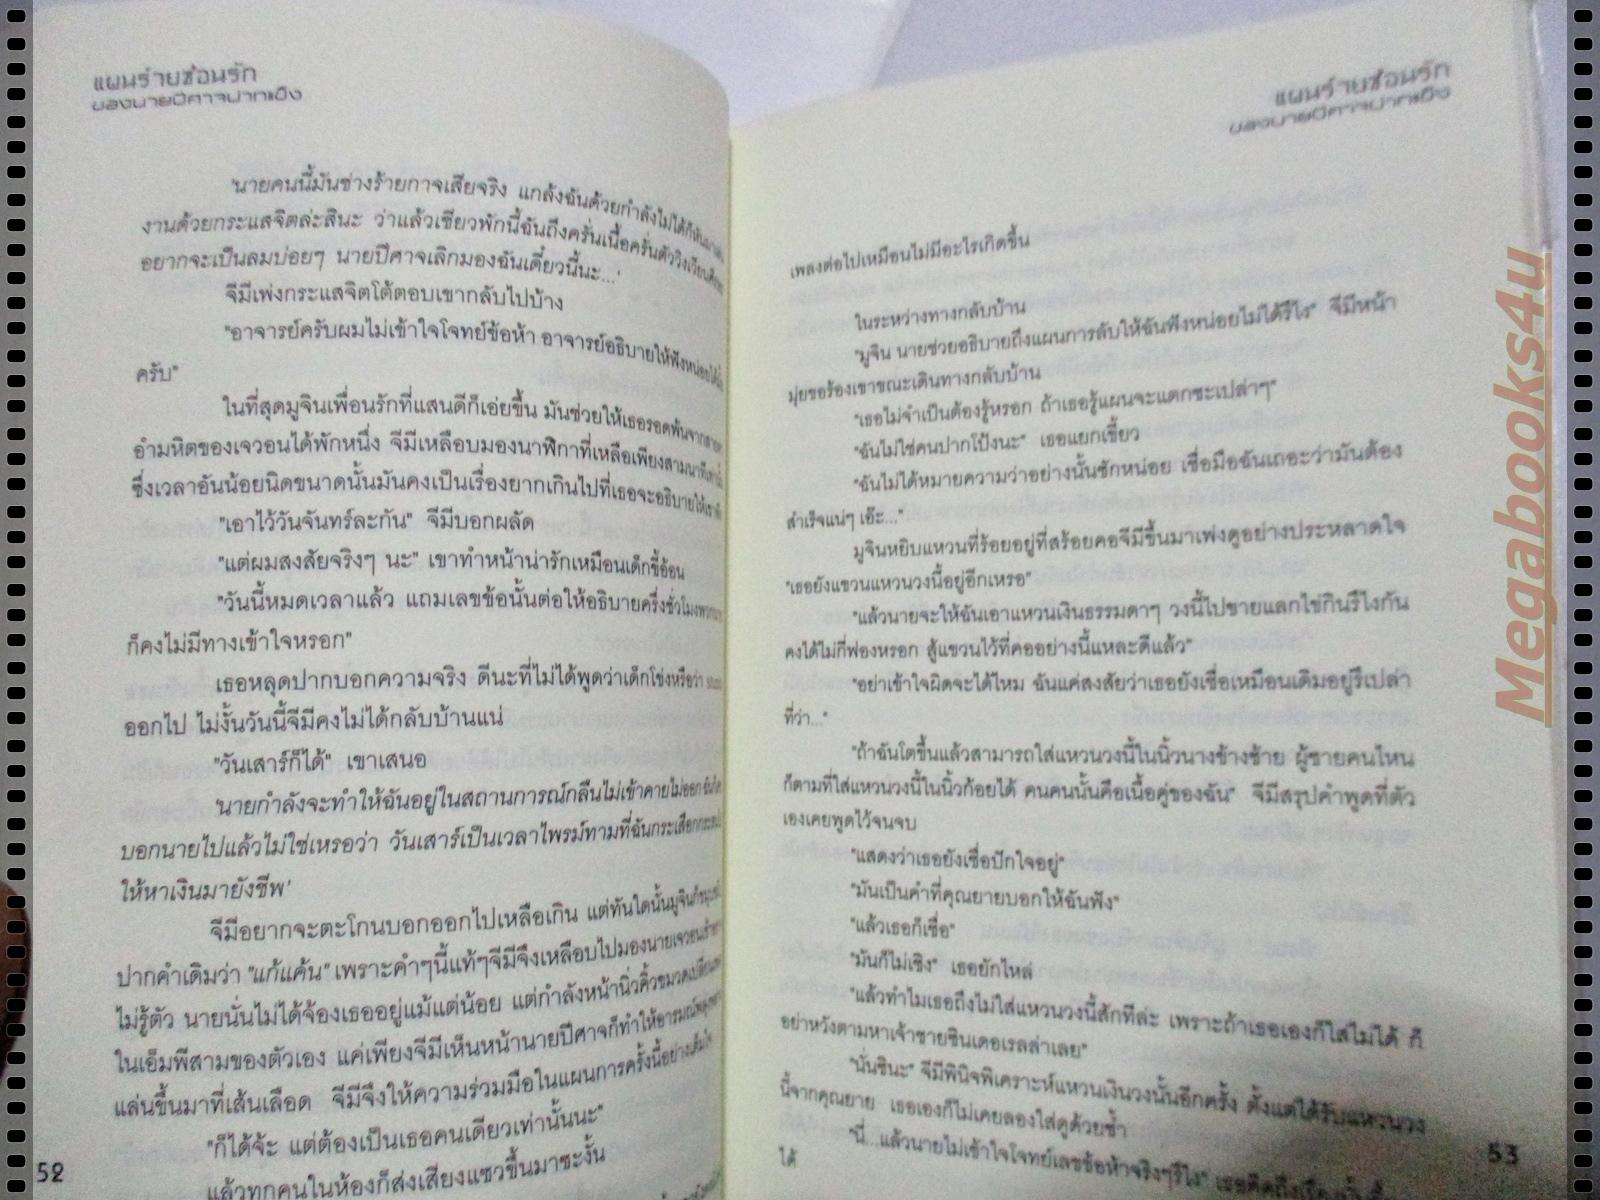 แผนร้ายซ่อนรัก
ของนายปีศาจปากแข็ง
'นายคนนี้มันช่างร้ายกาจเสียจริง แกล้งฉันด้วยกำลังไม่ได้ก็หันมา
งานด้วยกระแสจิตล่ะสินะ ว่าแล้วเชียวพักนี้ฉันถึงครั่นเนื้อครั่นตัววิงเวียน
อยากจะเป็นลมบ่อยๆ นายปีศาจเลิกมองฉันเดี๋ยวนี้นะ...'
จีมีเพ่งกระแสจิตโต้ตอบเขากลับไปบ้าง
"อาจารย์ครับผมไม่เข้าใจโจทย์ข้อห้า อาจารย์อธิบายให้ฟังหน่อยได้
ครับ"
ในที่สุดมูจินเพื่อนรักที่แสนดีก็เอ่ยขึ้น มันช่วยให้เธอรอดพ้นจาก
อำมหิตของเจวอนได้พักหนึ่ง จีมีเหลือบมองนาฬิกาที่เหลือเพียงสามนาที
ซึ่งเวลาอันน้อยนิดขนาดนั้นมันคงเป็นเรื่องยากเกินไปที่เธอจะอธิบายให้
"เอาไว้วันจันทร์ละกัน" จีมีบอกผลัด
"แต่ผมสงสัยจริงๆ นะ" เขาทำหน้าน่ารักเหมือนเด็กขี้อ้อน
"วันนี้หมดเวลาแล้ว แถมเลขข้อนั้นต่อให้อธิบายครึ่งชั่วโมง
ก็คงไม่มีทางเข้าใจหรอก"
เธอหลุดปากบอกความจริง ดีนะที่ไม่ได้พูดว่าเด็กโข่งหรือว่า
ออกไป ไม่งั้นวันนี้จีมีคงไม่ได้กลับบ้านแน่
"วันเสาร์ก็ได้" เขาเสนอ
'นายกำลังจะทำให้ฉันอยู่ในสถานการณ์กลืนไม่เข้าคายไม่ออก
บอกนายไปแล้วไม่ใช่เหรอว่า วันเสาร์เป็นเวลาไพรม์ทามที่ฉันกระเสือก
ให้หาเงินมายังชีพ'
จีมีอยากจะตะโกนบอกออกไปเหลือเกิน แต่ทันใดนั้นมูจินก็
ปากคำเดิมว่า "แก้แค้น" เพราะคำๆนี้แท้ๆจีมีจึงเหลือบไปมองนายเจวอน
ไม่รู้ตัว นายนั่นไม่ได้จ้องเธออยู่แม้แต่น้อย แต่กำลังหน้านิ่วคิ้วขมวด
ในเอ็มพีสามของตัวเอง แค่เพียงจีมีเห็นหน้านายปีศาจก็ทำให้อารมณ์
แล่นขึ้นมาที่เส้นเลือด จีมีจึงให้ความร่วมมือในแผนการครั้งนี้อย่างเต็มใจ
"ก็ได้จ้ะ แต่ต้องเป็นเธอคนเดียวเท่านั้นนะ"
แล้วทุกคนในห้องก็ส่งเสียงแซวขึ้นมาซะงั้น
52
แผนร้ายซ่อนรัก
ของนายปีศาจปากแข็ง
เพลงต่อไปเหมือนไม่มีอะไรเกิดขึ้น
ในระหว่างทางกลับบ้าน
"มูจิน นายช่วยอธิบายถึงแผนการลับให้ฉันฟังหน่อยไม่ได้รึไง" จีมีหน้า
มุ่ยขอร้องเขาขณะเดินทางกลับบ้าน
"เธอไม่จำเป็นต้องรู้หรอก ถ้าเธอรู้แผนจะแตกซะเปล่าๆ"
"ฉันไม่ใช่คนปากโป้งนะ" เธอแยกเขี้ยว
"ฉันไม่ได้หมายความว่าอย่างนั้นซักหน่อย เชื่อมือฉันเถอะว่ามันต้อง
สำเร็จแน่ๆ เอ๊ะ..."
มูจินหยิบแหวนที่ร้อยอยู่ที่สร้อยคอจีมีขึ้นมาเพ่งดูอย่างประหลาดใจ
"เธอยังแขวนแหวนวงนี้อยู่อีกเหรอ"
"แล้วนายจะให้ฉันเอาแหวนเงินธรรมดาๆ วงนี้ไปขายแลกไข่กินรึไงกัน
คงได้ไม่กี่ฟองหรอก สู้แขวนไว้ที่คออย่างนี้แหละดีแล้ว"
"อย่าเข้าใจผิดจะได้ไหม ฉันแค่สงสัยว่าเธอยังเชื่อเหมือนเดิมอยู่รึเปล่า
ที่ว่า..."
"ถ้าฉันโตขึ้นแล้วสามารถใส่แหวนวงนี้ในนิ้วนางข้างซ้าย ผู้ชายคนไหน
ก็ตามที่ใส่แหวนวงนี้ในนิ้วก้อยได้ คนคนนั้นคือเนื้อคู่ของฉัน" จีมีสรุปคำพูดที่ตัว
เองเคยพูดไว้จนจบ
"แสดงว่าเธอยังเชื่อปักใจอยู่"
"มันเป็นคำที่คุณยายบอกให้ฉันฟัง"
"แล้วเธอก็เชื่อ"
"มันก็ไม่เชิง" เธอยักไหล่
"แล้วทำไมเธอถึงไม่ใส่แหวนวงนี้สักทีล่ะ เพราะถ้าเธอเองก็ใส่ไม่ได้ ก็
อย่าหวังตามหาเจ้าชายซินเดอเรลล่าเลย"
"นั่นซินะ" จีมีพินิจพิเคราะห์แหวนเงินวงนั้นอีกครั้ง ตั้งแต่ได้รับแหวนวง
นี้จากคุณยาย เธอเองก็ไม่เคยลองใส่ดูด้วยซ้ำ
"นี่...แล้วนายไม่เข้าใจโจทย์เลขข้อห้าจริงๆรึไง"
ได้
53
Megabooks4u